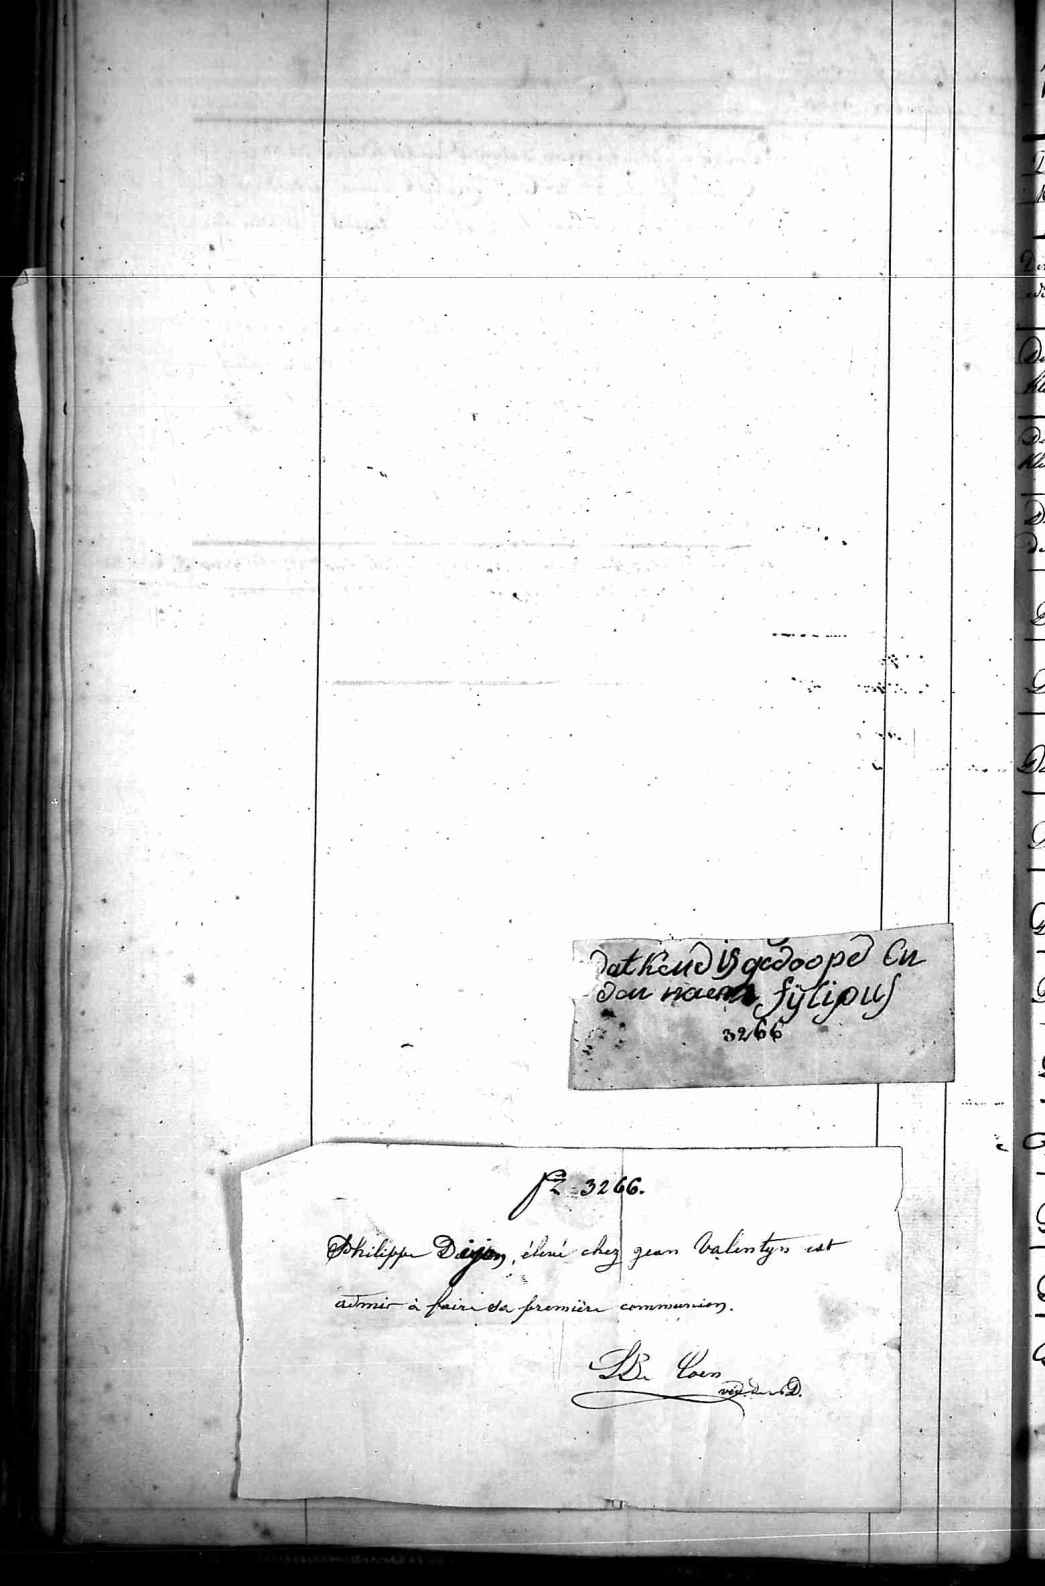 dat kend is gedoopd En
dan naem fylipus
3266
3266.
Philippe Dijon, élevé chez jean Valentyn est
admis à faire sa première communion.
Coen